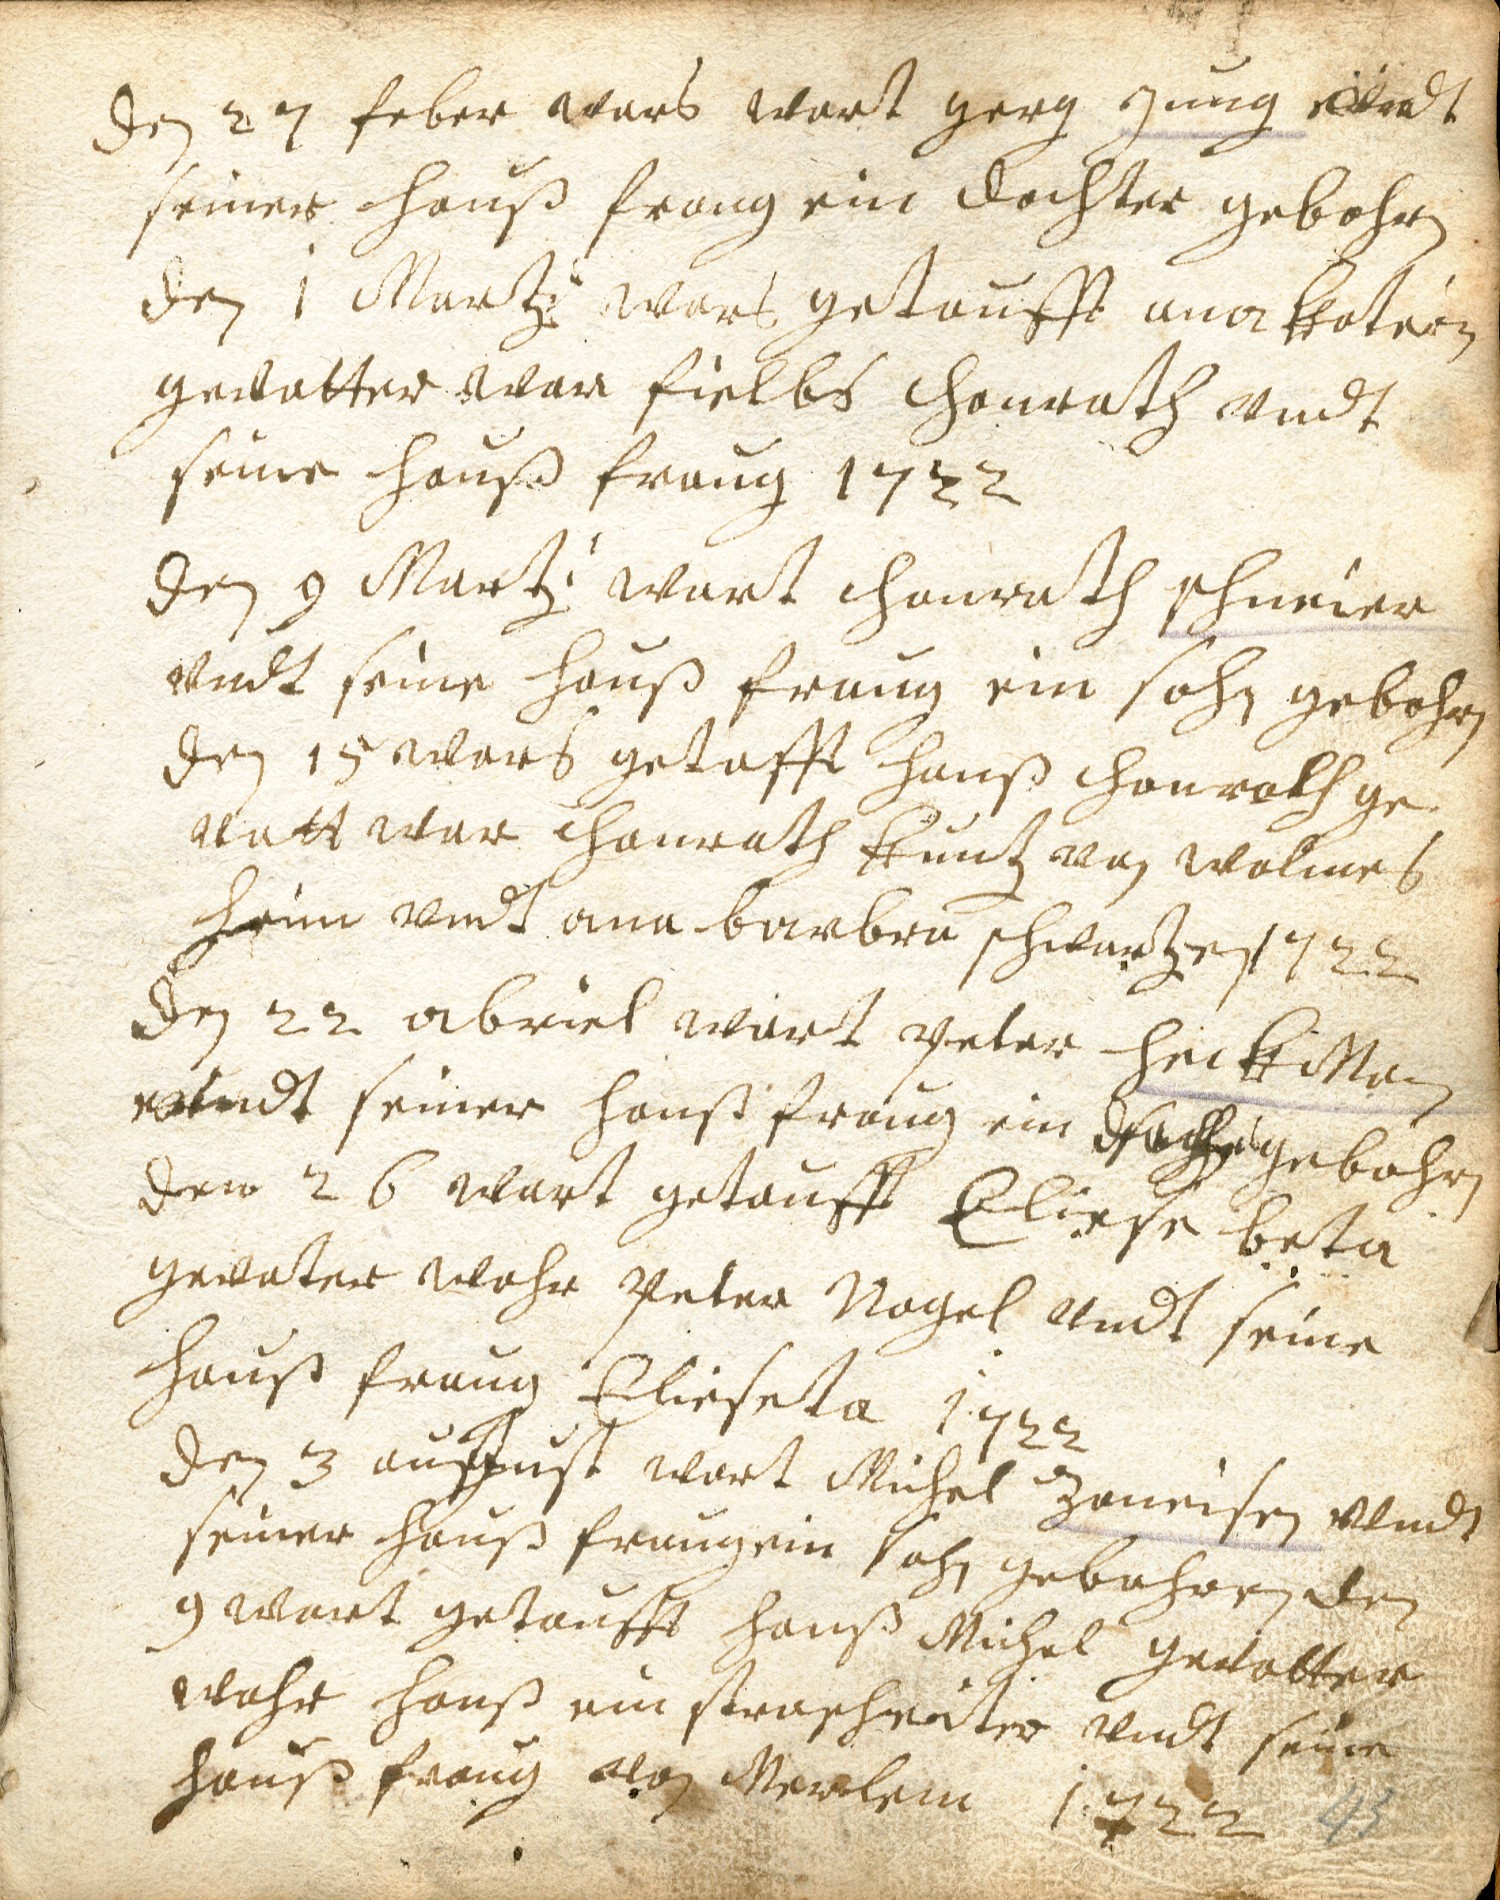 den 27 feber wars wart gerg Jung undt
seiner hauß fraug ein dochter gebohrn
den 1 Martzi wars getaufft ana katrin
gevatter war fielbs Chonrath undt
seine hauß fraug 1722
den 9 Martzi wart Chonrath schneier
undt seine hauß fraug ein sohn gebohrn
den 15 wars getafft hanß Chonrath ge
vatt war Chonrath kuntz von wolmes
heim undt ana barbra schwartzen 1722
den 22 abriel wart peter heickman
undt seiner hauß fraug ein gebohrn
den 26 wart getaufft Eliese beta
gevater wahr peter Nagel undt seine
hauß fraug Elieseta 1722
den 3 august wart Michel Zaneisen undt
seiner hauß fraug ein sohn gebohren den
9 wart getaufft hanß Michel gevatter
wahr hanß ein undt seine
hauß fraug von Merlem 1722
43